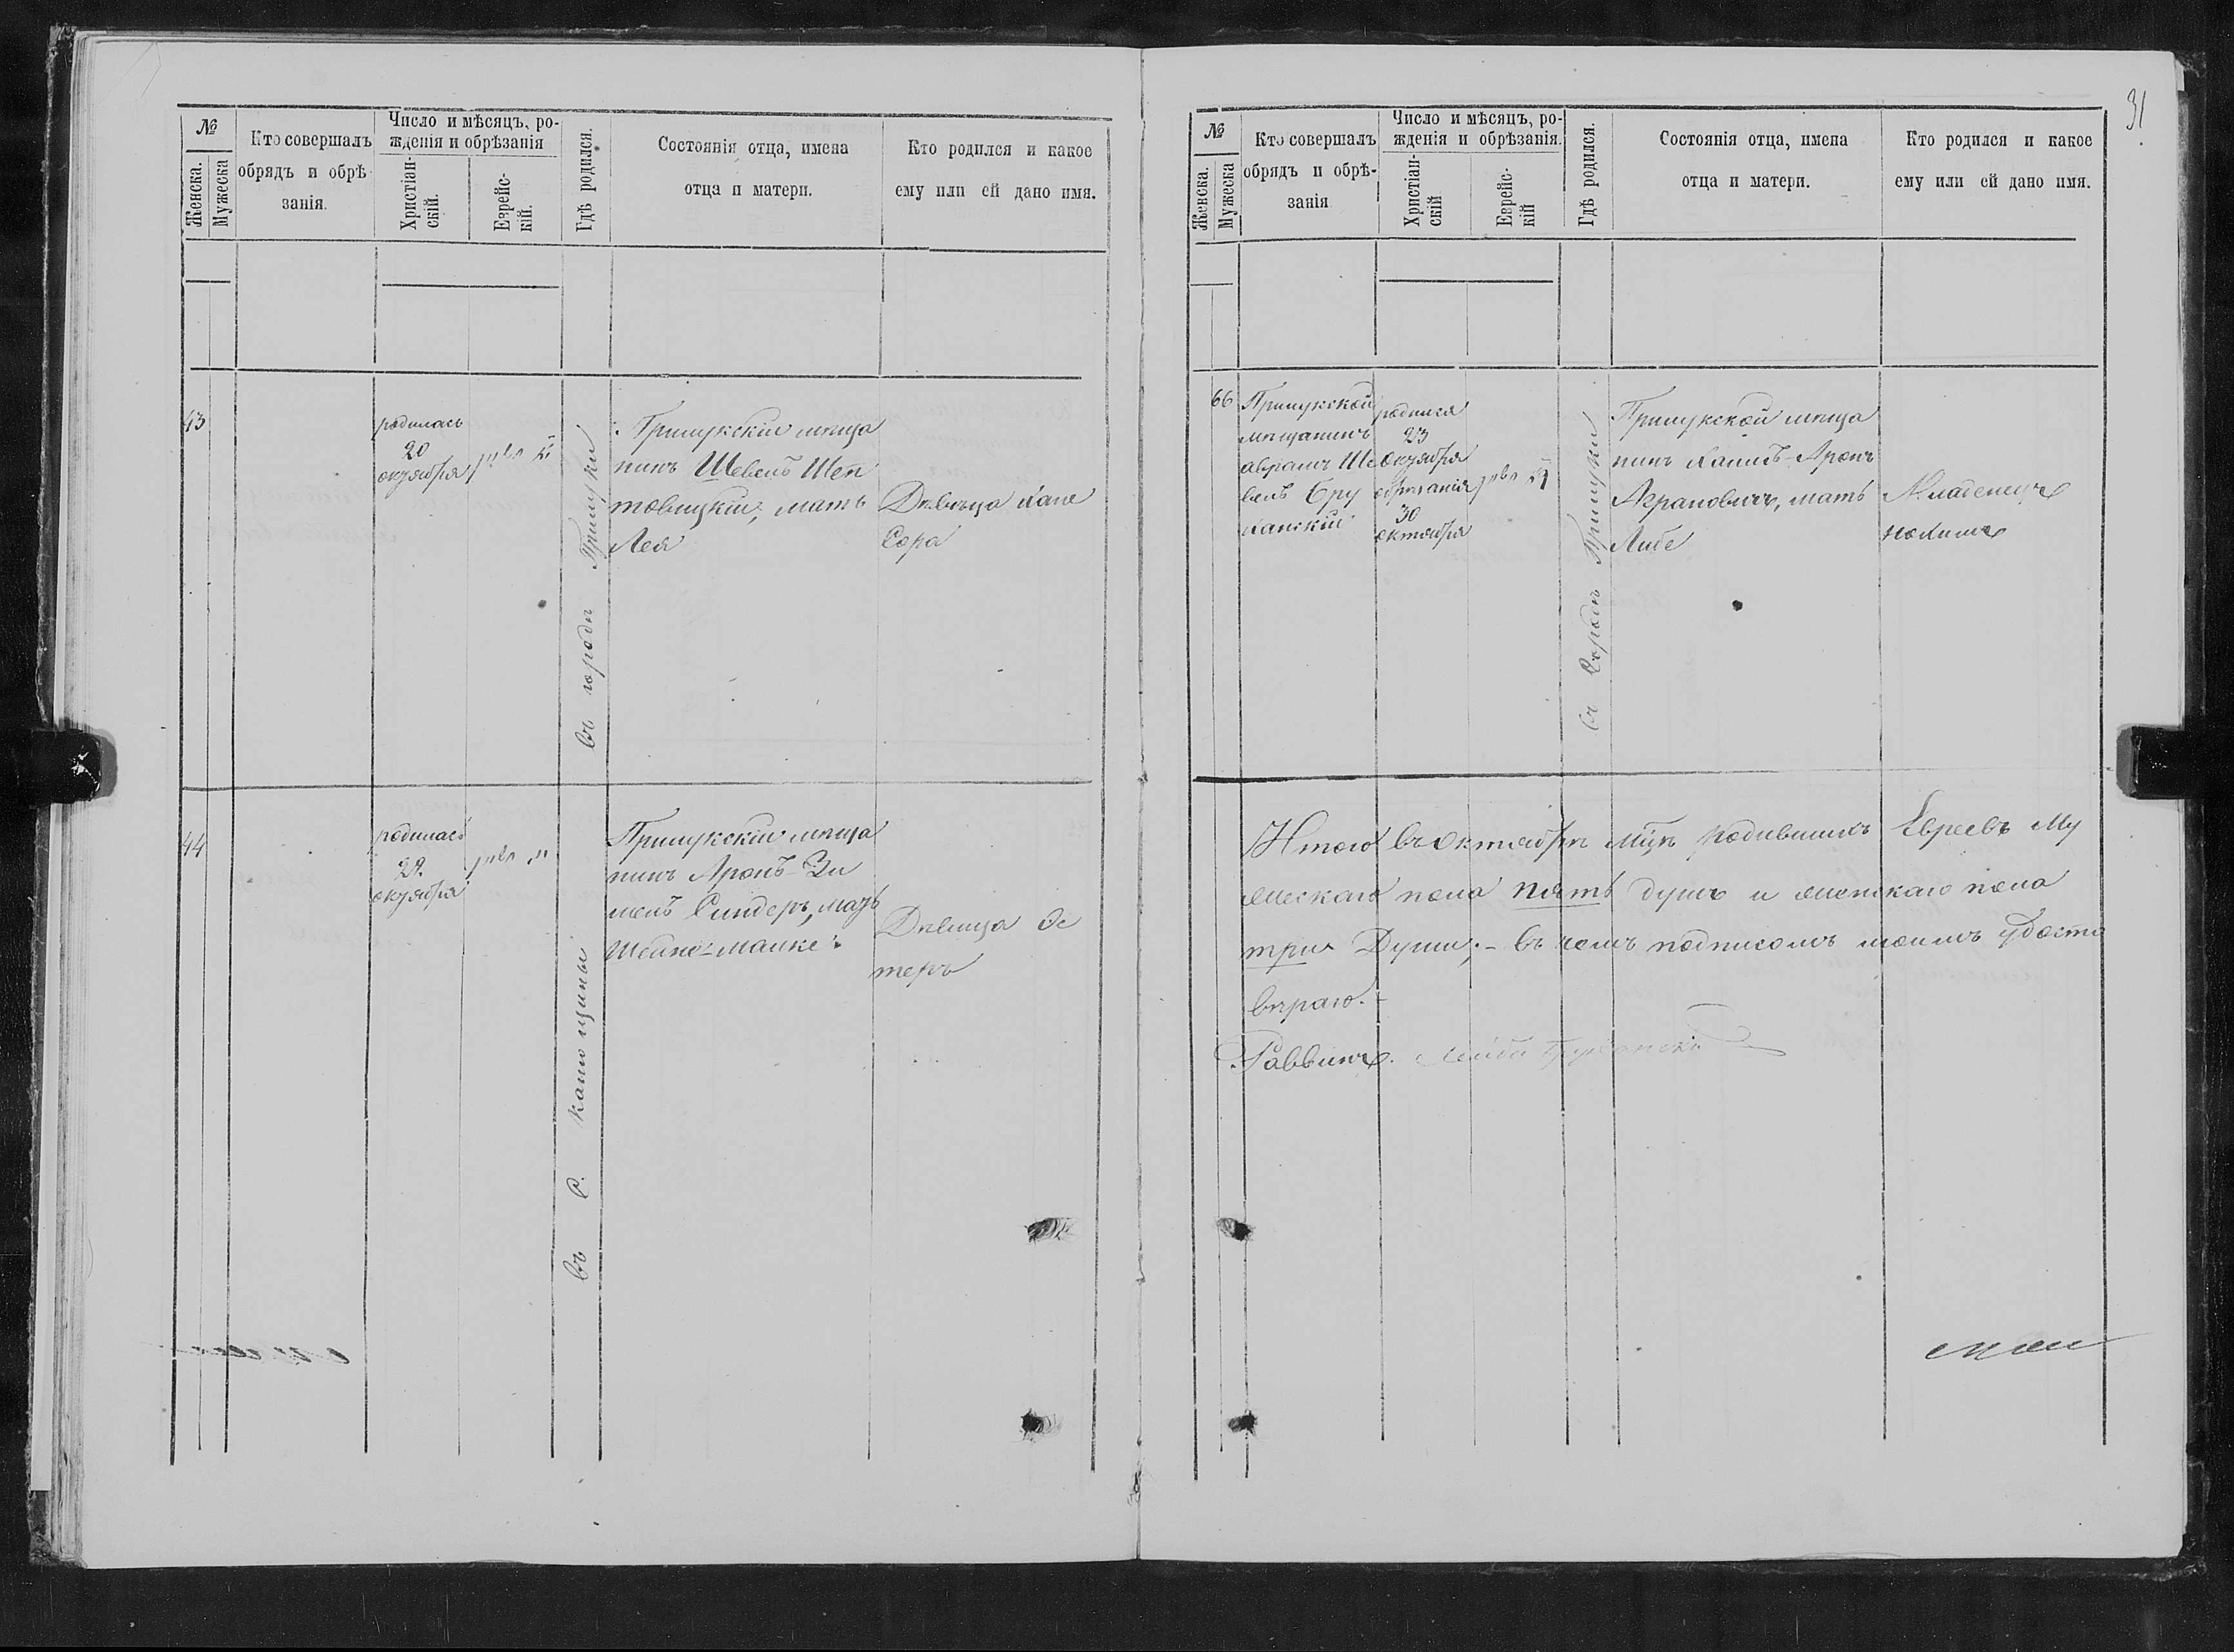 №
Женска.
Мужеска
Кто совершалъ
обрядъ и обрѣ
занія.
Число и мѣсяцъ, ро-
жденія и обрѣзанія
Христіан-
скій.
Еврейс-
кій.
Гдѣ родился.
Состоянія отца, имена
отца и матери.
Кто родился и какое
ему или ей дано имя.
43
родилась
20
октября
въ городѣ Прилуки
Прилукскій мѣща
нинъ Шевель Шеп
товицкій, мать
Лея
Дѣвица Хане
Сора
44
родилась
октября
въ с.
Прилукскій мѣща
нинъ Аронъ-Зи
мель Синдеръ, мать
Шейне-Малке
Дѣвица Эс
теръ
31
№
Женска.
Мужеска
Кто совершалъ
обрядъ и обрѣ-
занія
Число и мѣсяцъ, ро-
жденія и обрѣзанія.
Христіан-
скій
Еврейс-
кій
Гдѣ родился.
Состоянія отца, имена
отца и матери.
Кто родился и какое
ему или ей дано имя.
66
Прилукской
мѣщанинъ
аврамъ Ше
вель Бру
ханскій
родился
23
октября
обрѣзанія
30
октября
въ городѣ Прилуки
Прилукской мѣща
нинъ Хаимъ-Аронъ
Аграновичъ, мать
Либе
Младенецъ
Нохимъ
Итого въ октябрѣ мцѣ родившихъ Евреевъ Му
жескаго пола пять душъ и женскаго пола
три Души;- въ чемъ подписомъ моимъ удосто
вѣраю.-
Раввинъ. Лейба Брухански